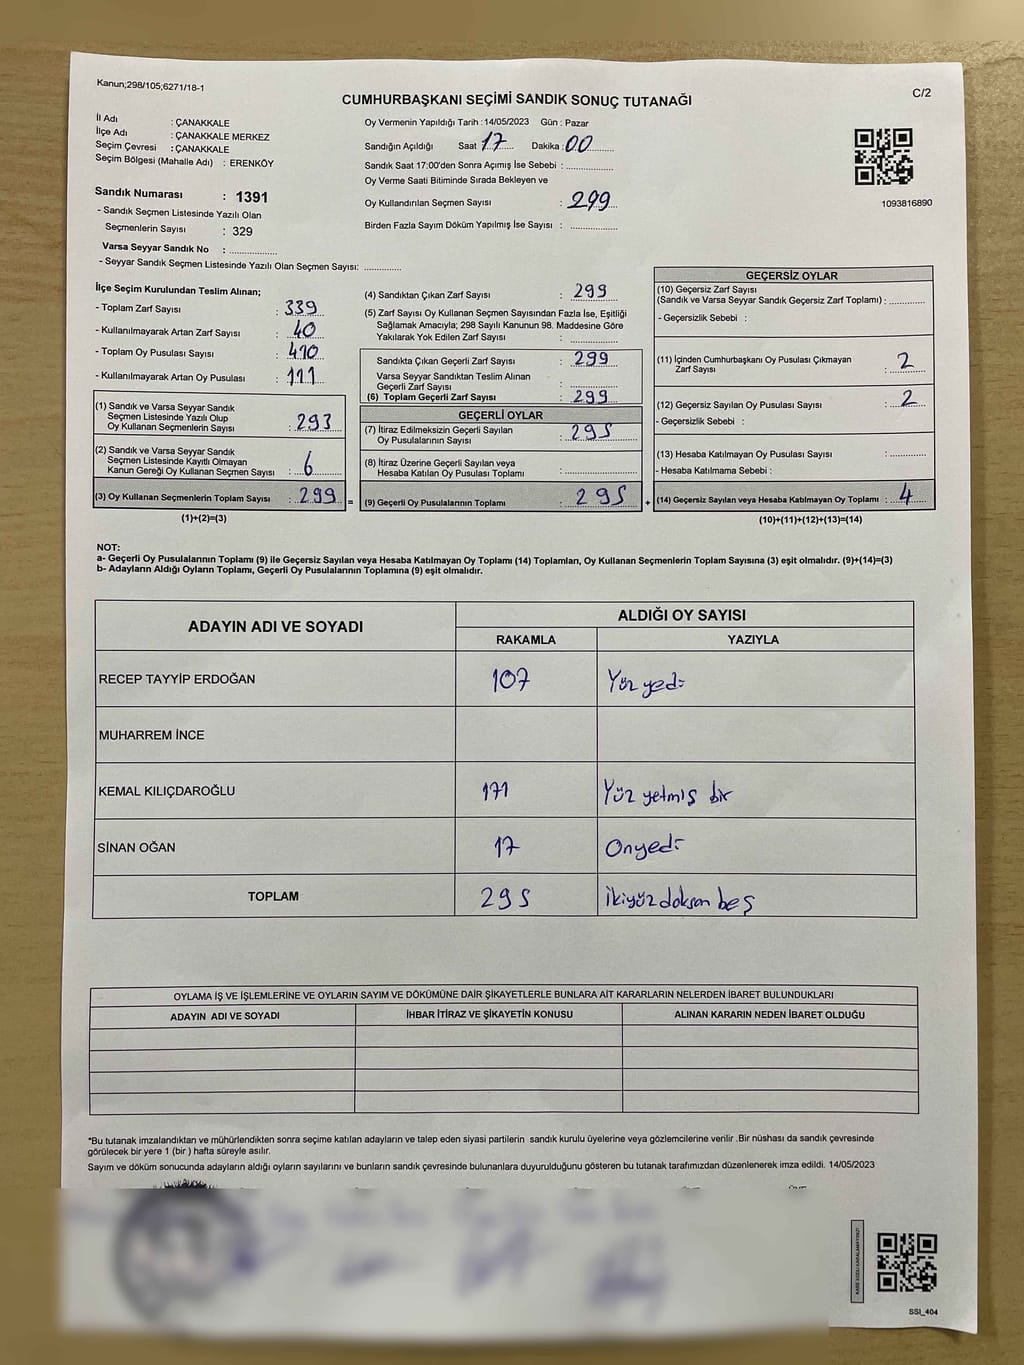 Kanun;298/105;6271/18-1
C/2
CUMHURBAŞKANI SEÇİMİ SANDIK SONUÇ TUTANAĞI
İl Adı : ÇANAKKALE
İlçe Adı : ÇANAKKALE MERKEZ
Seçim Çevresi : ÇANAKKALE
Seçim Bölgesi (Mahalle Adı) : ERENKÖY
Sandık Numarası : 1391
- Sandık Seçmen Listesinde Yazılı Olan
Seçmenlerin Sayısı : 329
Varsa Seyyar Sandık No : ..............
- Seyyar Sandık Seçmen Listesinde Yazılı Olan Seçmen Sayısı: ............
Oy Vermenin Yapıldığı Tarih :14/05/2023 Gün : Pazar
Sandığın Açıldığı Saat 17 Dakika : 00
Sandık Saat 17:00'den Sonra Açımış İse Sebebi : ..............
Oy Verme Saati Bitiminde Sırada Bekleyen ve
Oy Kullandırılan Seçmen Sayısı : 299
Birden Fazla Sayım Döküm Yapılmış İse Sayısı : ..............
1093816890
İlçe Seçim Kurulundan Teslim Alınan;
- Toplam Zarf Sayısı : 339
- Kullanılmayarak Artan Zarf Sayısı : 40
- Toplam Oy Pusulası Sayısı : 410
- Kullanılmayarak Artan Oy Pusulası : 111
(1) Sandık ve Varsa Seyyar Sandık
Seçmen Listesinde Yazılı Olup
Oy Kullanan Seçmenlerin Sayısı : 293
(2) Sandık ve Varsa Seyyar Sandık
Seçmen Listesinde Kayıtlı Olmayan
Kanun Gereği Oy Kullanan Seçmen Sayısı : 6
(3) Oy Kullanan Seçmenlerin Toplam Sayısı : 299 =
(1)+(2)=(3)
(4) Sandıktan Çıkan Zarf Sayısı : 299
(5) Zarf Sayısı Oy Kullanan Seçmen Sayısından Fazla İse, Eşitliği
Sağlamak Amacıyla; 298 Sayılı Kanunun 98. Maddesine Göre
Yakılarak Yok Edilen Zarf Sayısı : ..............
Sandıkta Çıkan Geçerli Zarf Sayısı : 299
Varsa Seyyar Sandıktan Teslim Alınan
Geçerli Zarf Sayısı : ..............
(6) Toplam Geçerli Zarf Sayısı : 299
GEÇERLİ OYLAR
(7) İtiraz Edilmeksizin Geçerli Sayılan
Oy Pusulalarının Sayısı : 295
(8) İtiraz Üzerine Geçerli Sayılan veya
Hesaba Katılan Oy Pusulası Toplamı : ..............
(9) Geçerli Oy Pusulalarının Toplamı : 295 +
GEÇERSİZ OYLAR
(10) Geçersiz Zarf Sayısı
(Sandık ve Varsa Seyyar Sandık Geçersiz Zarf Toplamı) : ............
- Geçersizlik Sebebi :
(11) İçinden Cumhurbaşkanı Oy Pusulası Çıkmayan
Zarf Sayısı : 2
(12) Geçersiz Sayılan Oy Pusulası Sayısı : 2
- Geçersizlik Sebebi :
(13) Hesaba Katılmayan Oy Pusulası Sayısı : ............
- Hesaba Katılmama Sebebi :
(14) Geçersiz Sayılan veya Hesaba Katılmayan Oy Toplamı : 4
(10)+(11)+(12)+(13)=(14)
NOT:
a- Geçerli Oy Pusulalarının Toplamı (9) ile Geçersiz Sayılan veya Hesaba Katılmayan Oy Toplamı (14) Toplamları, Oy Kullanan Seçmenlerin Toplam Sayısına (3) eşit olmalıdır. (9)+(14)=(3)
b- Adayların Aldığı Oyların Toplamı, Geçerli Oy Pusulalarının Toplamına (9) eşit olmalıdır.
ADAYIN ADI VE SOYADI
ALDIĞI OY SAYISI
RAKAMLA YAZIYLA
RECEP TAYYİP ERDOĞAN 107 Yüz yedi
MUHARREM İNCE
KEMAL KILIÇDAROĞLU 171 Yüz yetmiş bir
SİNAN OĞAN 17 Onyedi
TOPLAM 295 İkiyüz doksan beş
OYLAMA İŞ VE İŞLEMLERİNE VE OYLARIN SAYIM VE DÖKÜMÜNE DAİR ŞİKAYETLERLE BUNLARA AİT KARARLARIN NELERDEN İBARET BULUNDUKLARI
ADAYIN ADI VE SOYADI İHBAR İTİRAZ VE ŞİKAYETİN KONUSU ALINAN KARARIN NEDEN İBARET OLDUĞU
*Bu tutanak imzalandıktan ve mühürlendikten sonra seçime katılan adayların ve talep eden siyasi partilerin sandık kurulu üyelerine veya gözlemcilerine verilir .Bir nüshası da sandık çevresinde
görülecek bir yere 1 (bir ) hafta süreyle asılır.
Sayım ve döküm sonucunda adayların aldığı oyların sayılarını ve bunların sandık çevresinde bulunanlara duyurulduğunu gösteren bu tutanak tarafımızdan düzenlenerek imza edildi. 14/05/2023
SSI_404